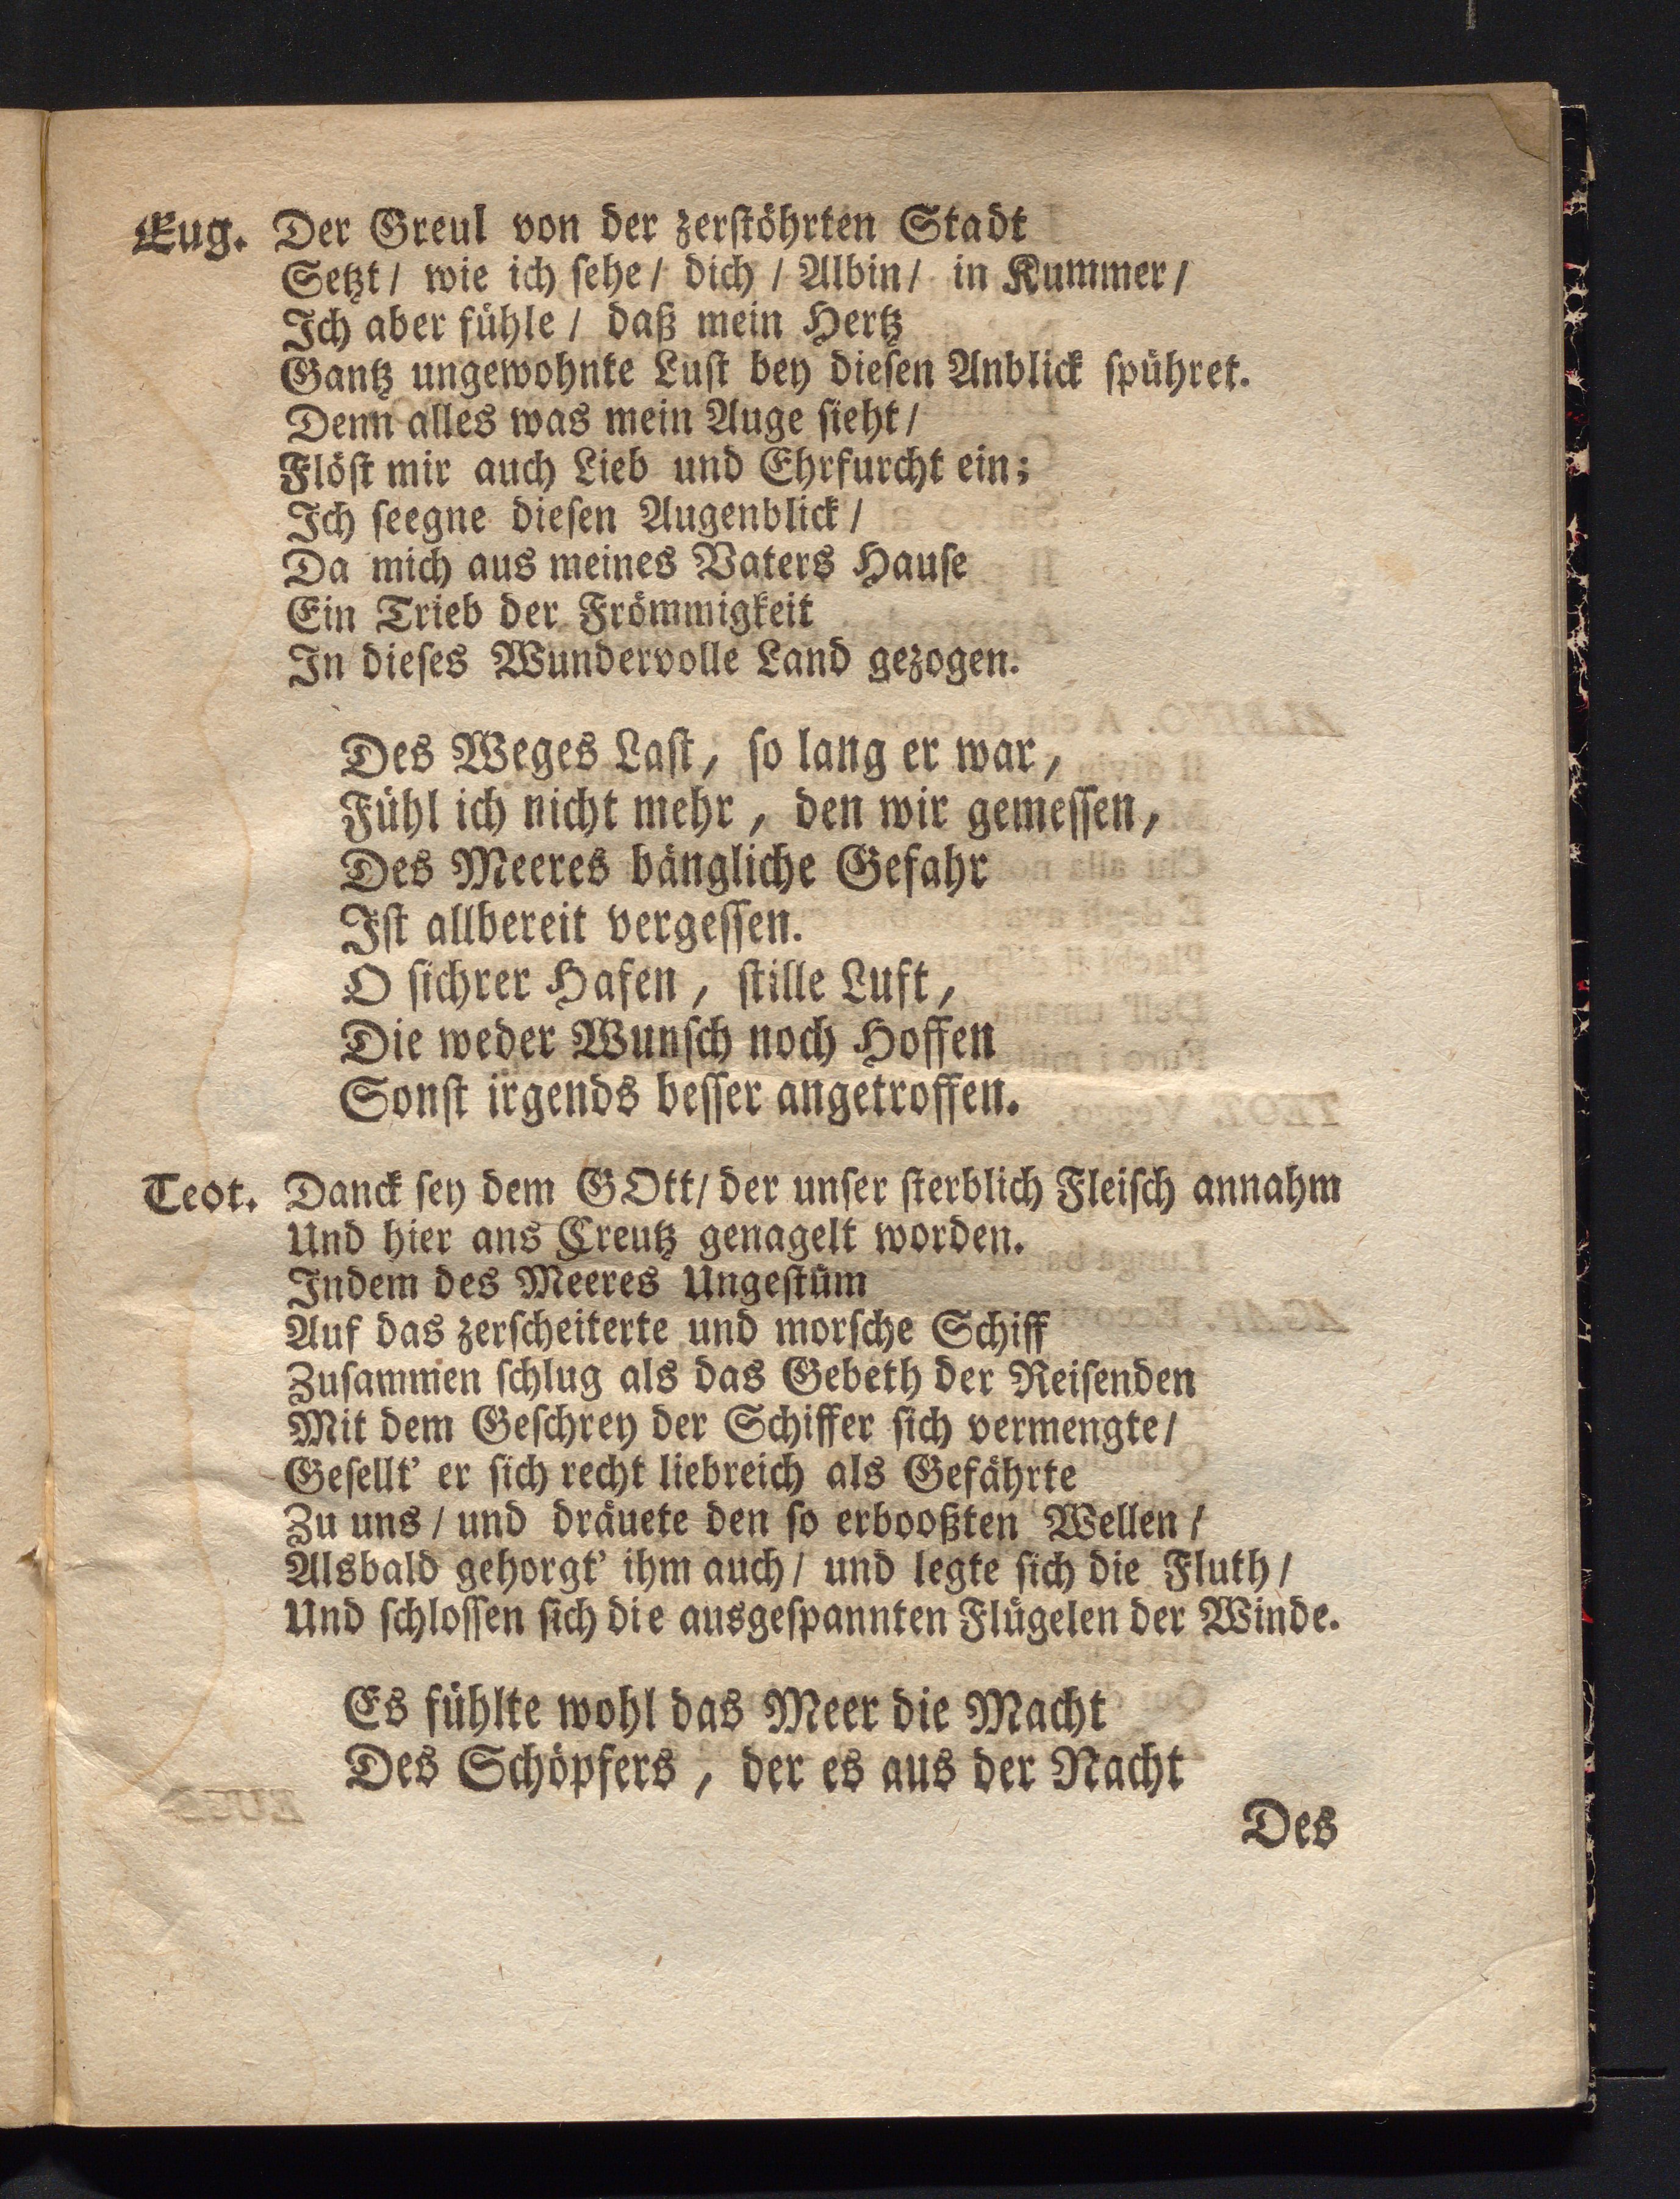 Eug. Der Greul von der zerstöhrten Stadt
Setzt/ wie ich sehe/ dich / Albin/ in Kummer/
Ich aber fühle / daß mein Hertz
Gantz ungewohnte Lust bey diesen Anblick spühret.
Denn alles was mein Auge sieht/
Flöst mir auch Lieb und Ehrfurcht ein;
Ich seegne diesen Augenblick/
Da mich aus meines Vaters Hause
Ein Trieb der Frömmigkeit
In dieses Wundervolle Land gezogen.
Des Weges Last, so lang er war,
Fühl ich nicht mehr, den wir gemessen,
Des Meeres bängliche Gefahr
Ist allbereit vergessen.
O sichrer Hafen, stille Luft,
Die weder Wunsch noch Hoffen
Sonst irgends besser angetroffen.
Teot. Danck sey dem GOtt/ der unser sterblich Fleisch annahm
Und hier ans Creutz genagelt worden.
Indem des Meeres Ungestüm
Auf das zerscheiterte und morsche Schiff
Zusammen schlug als das Gebeth der Reisenden
Mit dem Geschrey der Schiffer sich vermengte/
Gesellt' er sich recht liebreich als Gefährte
Zu uns/ und dräuete den so erbooßten Wellen/
Alsbald gehorgt' ihm auch/ und legte sich die Fluth/
Und schlossen sich die ausgespannten Flügelen der Winde.
Es fühlte wohl das Meer die Macht
Des Schöpfers, der es aus der Nacht
Des